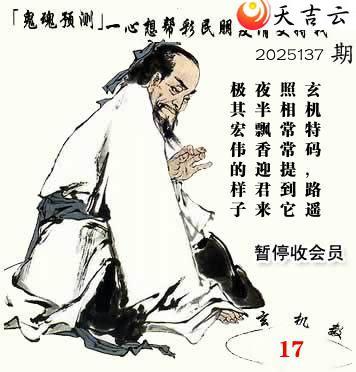 天吉云
「鬼魂预测」一心想帮彩民朋友
2025137 期
玄机特码，路遥
照相常常提到它
夜半飘香迎君来
极其宏伟的样子
暂停收会员
玄机
17